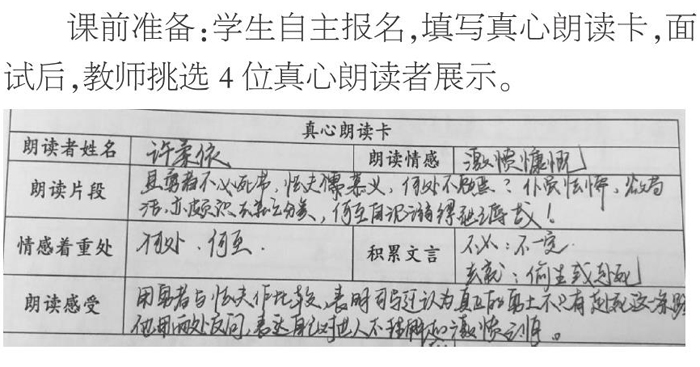 课前准备：学生自主报名，填写真心朗读卡，面
试后，教师挑选 4 位真心朗读者展示。
真心朗读卡
朗读者姓名 许柔依 朗读情感 激愤慷慨
朗读片段 且勇者不必死节，怯夫慕义，何处不勉焉？仆虽怯懦，欲苟
活，亦颇识去就之分矣，何至自沉溺缧绁之辱哉！
情感着重处 何处、何至. 积累文言 不必：不一定
去就：偷生或赴死
朗读感受 用勇者与怯夫作比较，表明司马迁认为真正的勇士不只有赴死这一条路
他用两处反问，表达自己对世人不理解的激愤之情。